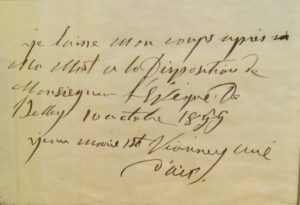 je laisse mon corps après
ma mort a la Disposition de
Monseigneur l'Evêque De
Belley 10 octobre 1855
jean marie bte Vianney curé
d'ars